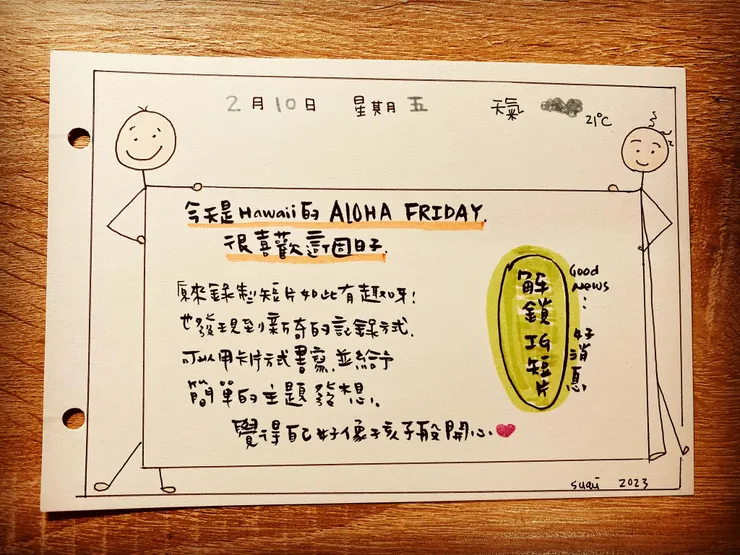 2月10日 星期五 天氣 21°C
今天是Hawaii的 ALOHA FRIDAY.
很喜歡這個日子.
原來錄製短片如此有趣呀!
也發現到新奇的記錄方式.
可以用卡片方式書寫,並給予
簡單的主題發想.
覺得自己好像孩子般開心.
Good
News:
好消息
解鎖IG短片
suqii 2023